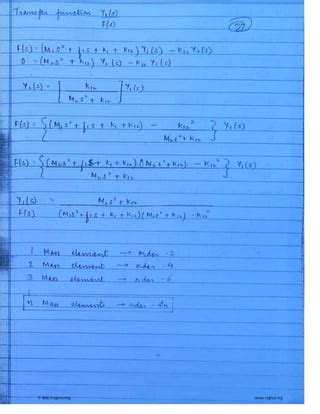 Transfer function Y₁(s)
F(s)
27
F(s) = (M₁s² + f₁s + k₁ + k₁₂) Y₁(s) - K₁₂ Y₂(s)
0 = (M₂s² + k₁₂) Y₂(s) - K₁₂ Y₁(s)
Y₂(s) = [ k₁₂ ] Y₁(s)
M₂s² + k₁₂
F(s) = { (M₁s² + f₁s + k₁ + k₁₂) - k₁₂² } Y₁(s)
M₂s² + K₁₂
F(s) = { (M₁s² + f₁s + k₁ + k₁₂)(M₂s² + K₁₂) - K₁₂² } Y₁(s)
M₂s² + K₁₂
Y₁(s) = M₂s² + k₁₂
F(s) (M₁s² + f₁s + k₁ + k₁₂)(M₂s² + k₁₂) - K₁₂²
1 Mass element → order - 2
2 Mass element → order - 4
3 Mass element → order - 6
n Mass elements → order - 2n